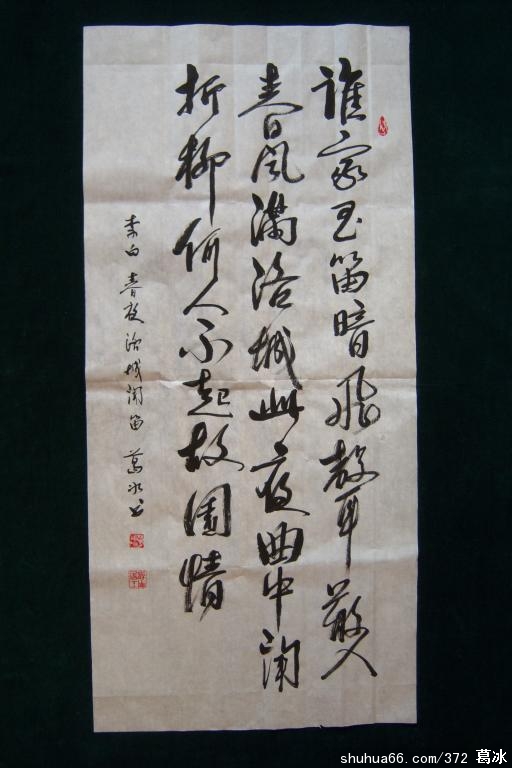 谁家玉笛暗飞声散入
春风满洛城此夜曲中闻
折柳何人不起故园情
李白 春夜洛城闻笛 葛冰书
shuhua66.com/372 葛冰